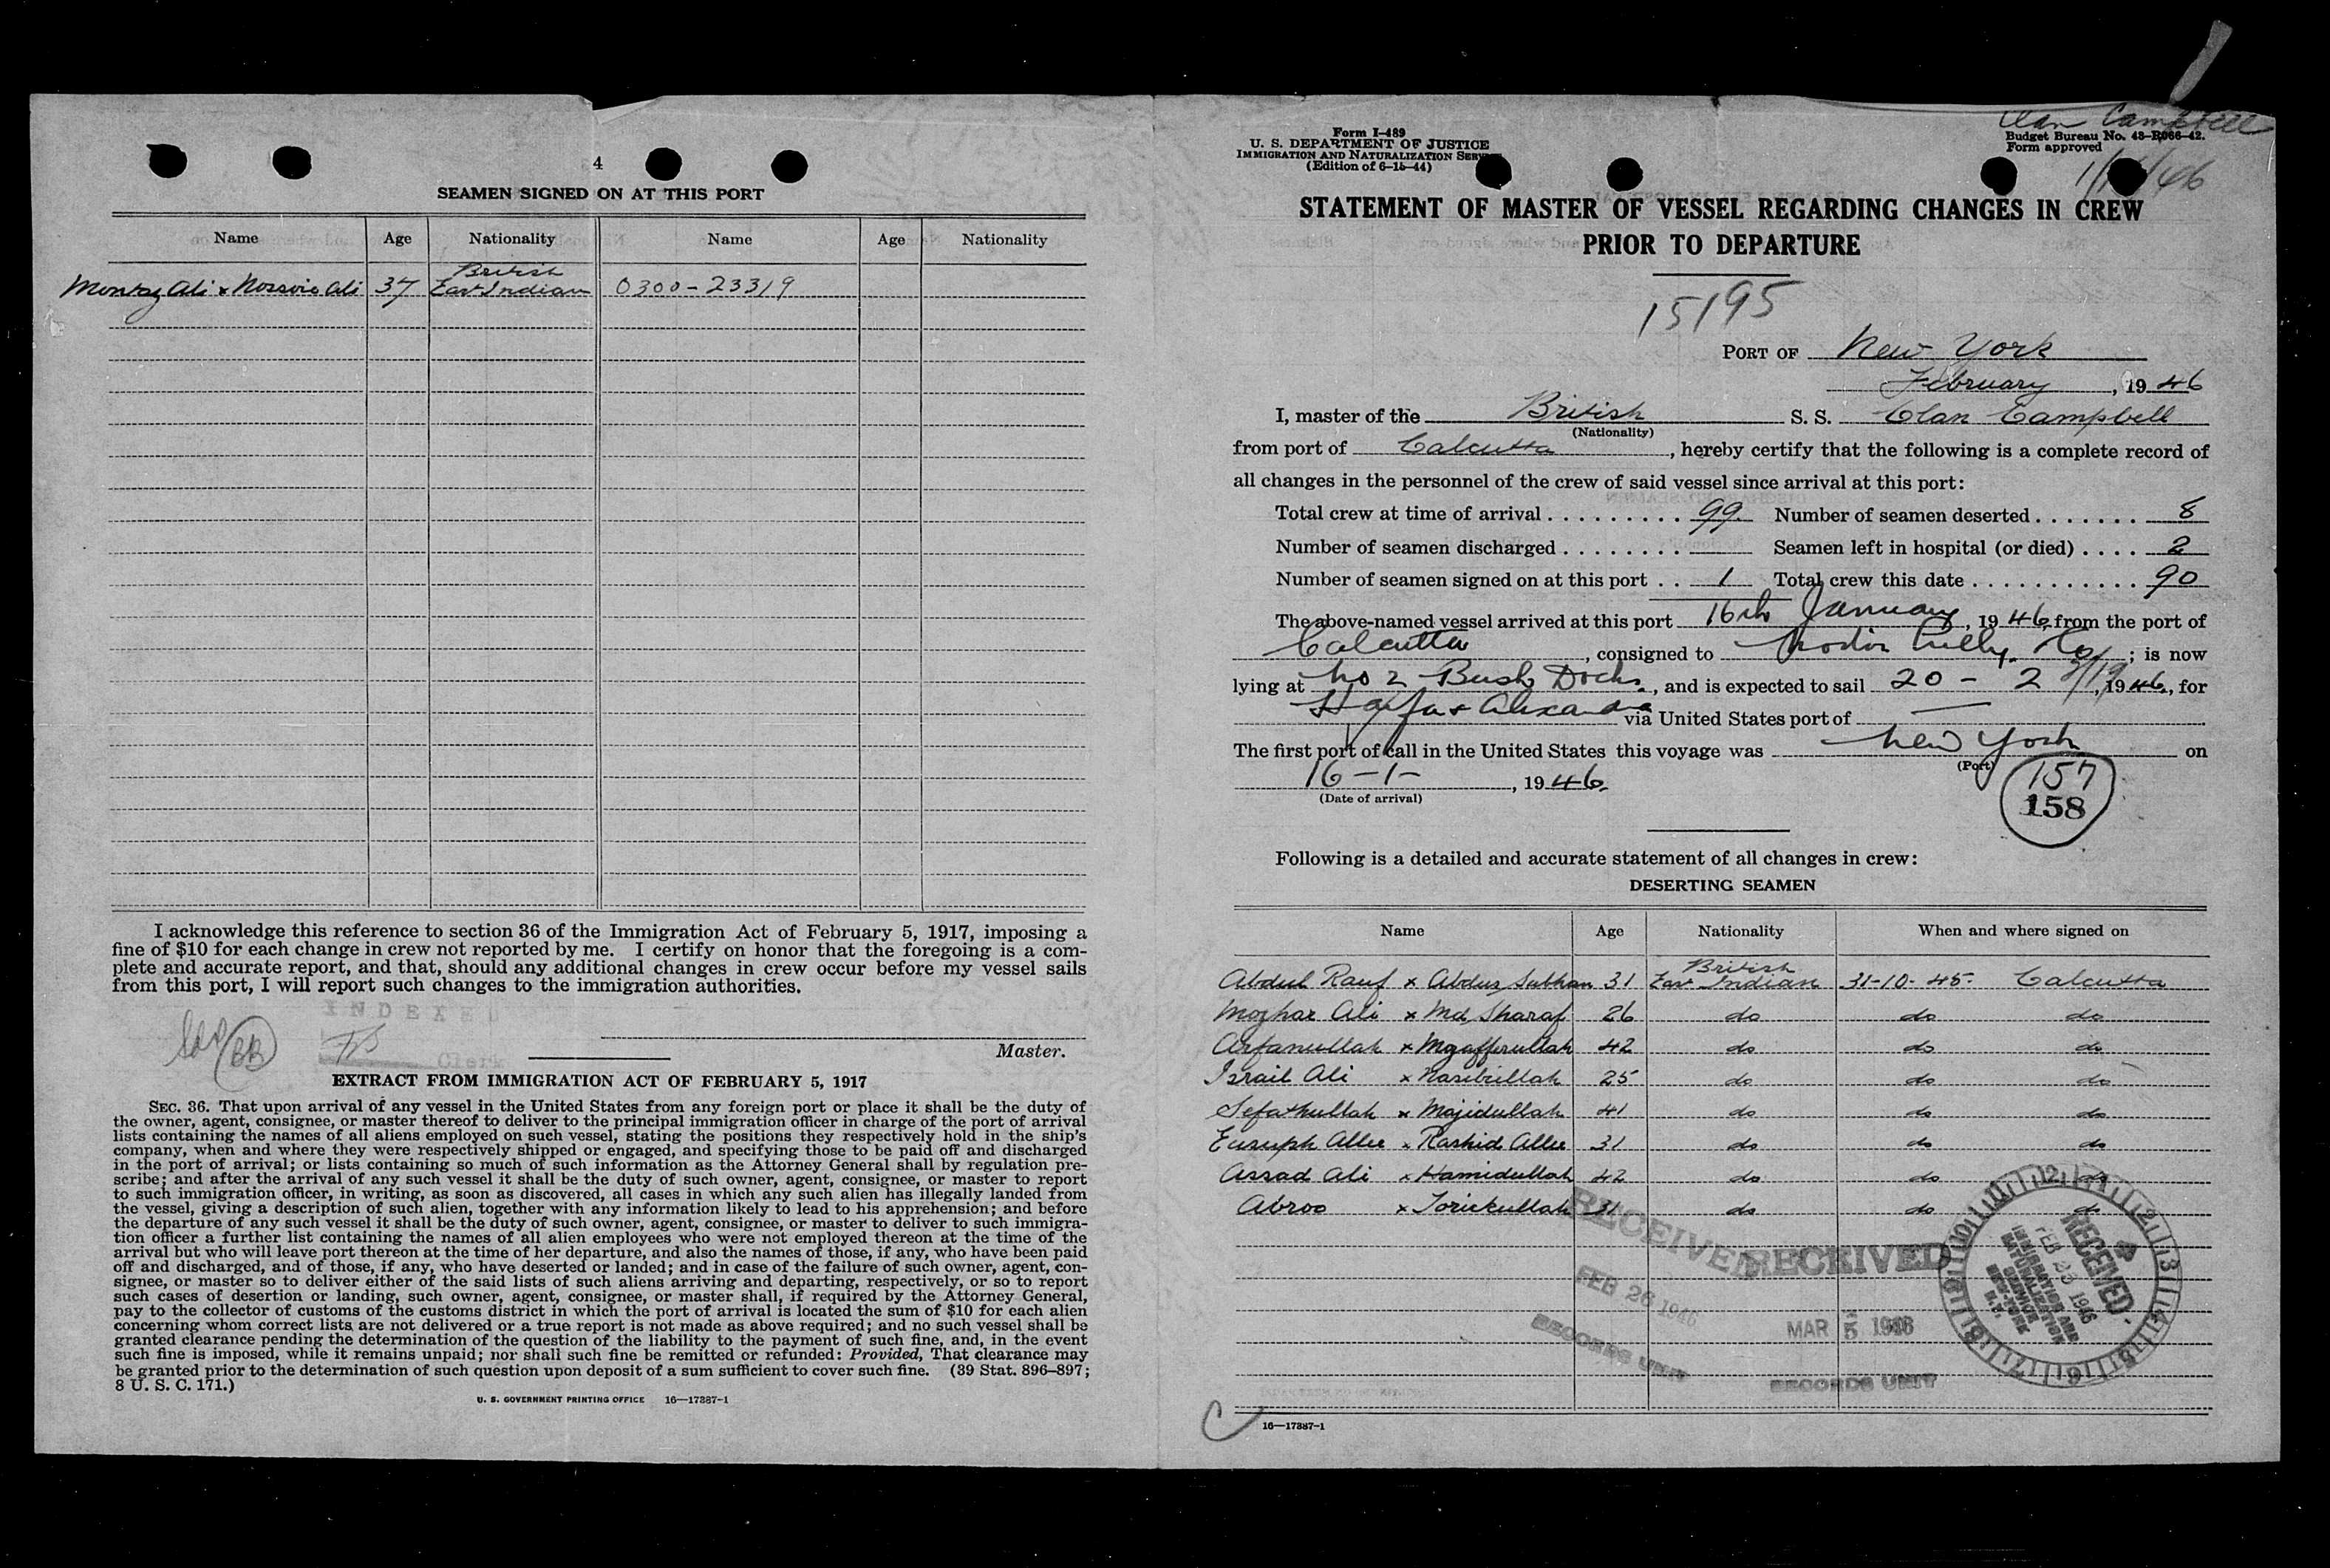 4
SEAMEN SIGNED ON AT THIS PORT
Name Age Nationality Name Age Nationality
British
Montaz Ali x Ali 37 East Indian 0300-23319
I acknowledge this reference to section 36 of the Immigration Act of February 5, 1917, imposing a
fine of $10 for each change in crew not reported by me. I certify on honor that the foregoing is a com-
plete and accurate report, and that, should any additional changes in crew occur before my vessel sails
from this port, I will report such changes to the immigration authorities.
INDEXED
BB
Clerk
Master.
EXTRACT FROM IMMIGRATION ACT OF FEBRUARY 5, 1917
SEC. 36. That upon arrival of any vessel in the United States from any foreign port or place it shall be the duty of
the owner, agent, consignee, or master thereof to deliver to the principal immigration officer in charge of the port of arrival
lists containing the names of all aliens employed on such vessel, stating the positions they respectively hold in the ship's
company, when and where they were respectively shipped or engaged, and specifying those to be paid off and discharged
in the port of arrival; or lists containing so much of such information as the Attorney General shall by regulation pre-
scribe; and after the arrival of any such vessel it shall be the duty of such owner, agent, consignee, or master to report
to such immigration officer, in writing, as soon as discovered, all cases in which any such alien has illegally landed from
the vessel, giving a description of such alien, together with any information likely to lead to his apprehension; and before
the departure of any such vessel it shall be the duty of such owner, agent, consignee, or master to deliver to such immigra-
tion officer a further list containing the names of all alien employees who were not employed thereon at the time of the
arrival but who will leave port thereon at the time of her departure, and also the names of those, if any, who have been paid
off and discharged, and of those, if any, who have deserted or landed; and in case of the failure of such owner, agent, con-
signee, or master so to deliver either of the said lists of such aliens arriving and departing, respectively, or so to report
such cases of desertion or landing, such owner, agent, consignee, or master shall, if required by the Attorney General,
pay to the collector of customs of the customs district in which the port of arrival is located the sum of $10 for each alien
concerning whom correct lists are not delivered or a true report is not made as above required; and no such vessel shall be
granted clearance pending the determination of the question of the liability to the payment of such fine, and, in the event
such fine is imposed, while it remains unpaid; nor shall such fine be remitted or refunded: Provided, That clearance may
be granted prior to the determination of such question upon deposit of a sum sufficient to cover such fine. (39 Stat. 896–897;
8 U. S. C. 171.)
U. S. GOVERNMENT PRINTING OFFICE 16—17387-1
Clan Campbell
Form I-489
U. S. DEPARTMENT OF JUSTICE
IMMIGRATION AND NATURALIZATION SERVICE
(Edition of 6-15-44)
Budget Bureau No. 43-R066-42.
Form approved
STATEMENT OF MASTER OF VESSEL REGARDING CHANGES IN CREW
PRIOR TO DEPARTURE
15195
PORT OF New York
February, 1946
I, master of the British S. S. Clan Campbell
(Nationality)
from port of Calcutta, hereby certify that the following is a complete record of
all changes in the personnel of the crew of said vessel since arrival at this port:
Total crew at time of arrival 99 Number of seamen deserted 8
Number of seamen discharged Seamen left in hospital (or died) 2
Number of seamen signed on at this port 1 Total crew this date 90
The above-named vessel arrived at this port 16th January, 1946, from the port of
Calcutta, consigned to Norton Lilly Co; is now
lying at No 2 Bush Docks, and is expected to sail 20 - 2, 1946, for
Haifa & via United States port of —
The first port of call in the United States this voyage was New York on
(Port)
16-1-, 1946.
(Date of arrival)
157
158
Following is a detailed and accurate statement of all changes in crew:
DESERTING SEAMEN
Name Age Nationality When and where signed on
British
Abdul Rauf x Abdus Subhan 31 East Indian 31-10-45. Calcutta
Mozhar Ali x Md Sharaf 26 do do do
Arfanullah x 42 do do do
Israil Ali x Nasibullah 25 do do do
Sefathullah x Majidullah 41 do do do
Eusuph Allee x Rashid Allee 31 do do do
Assad Ali x Hamidullah 42 do do do
Abroo x 31 do do do
RECEIVED
FEB 26 1946
RECORDS UNIT
RECEIVED
MAR 5 1946
RECORDS UNIT
RECEIVED
FEB 23 1946
IMMIGRATION AND
NATURALIZATION
SERVICE
NEW YORK
N.Y.
16—17387-1